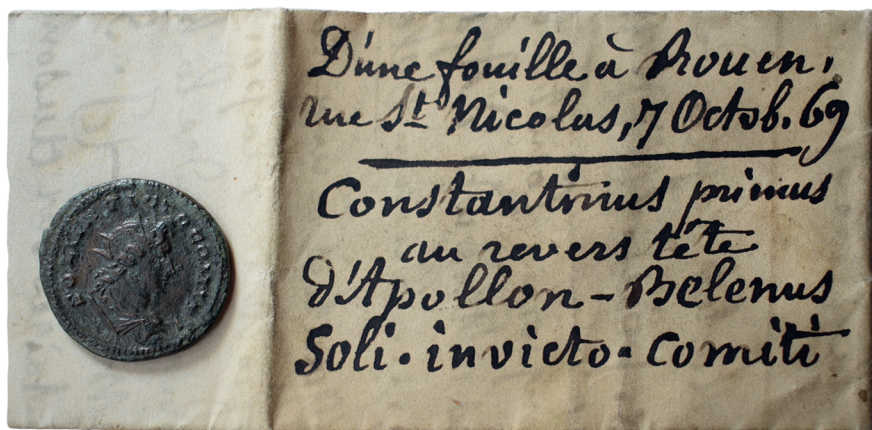 D'une fouille à Rouen,
rue St Nicolas, 7 Octob. 69
Constantinus primus
au revers tête
d'Apollon-Belenus
Soli. invicto. comiti